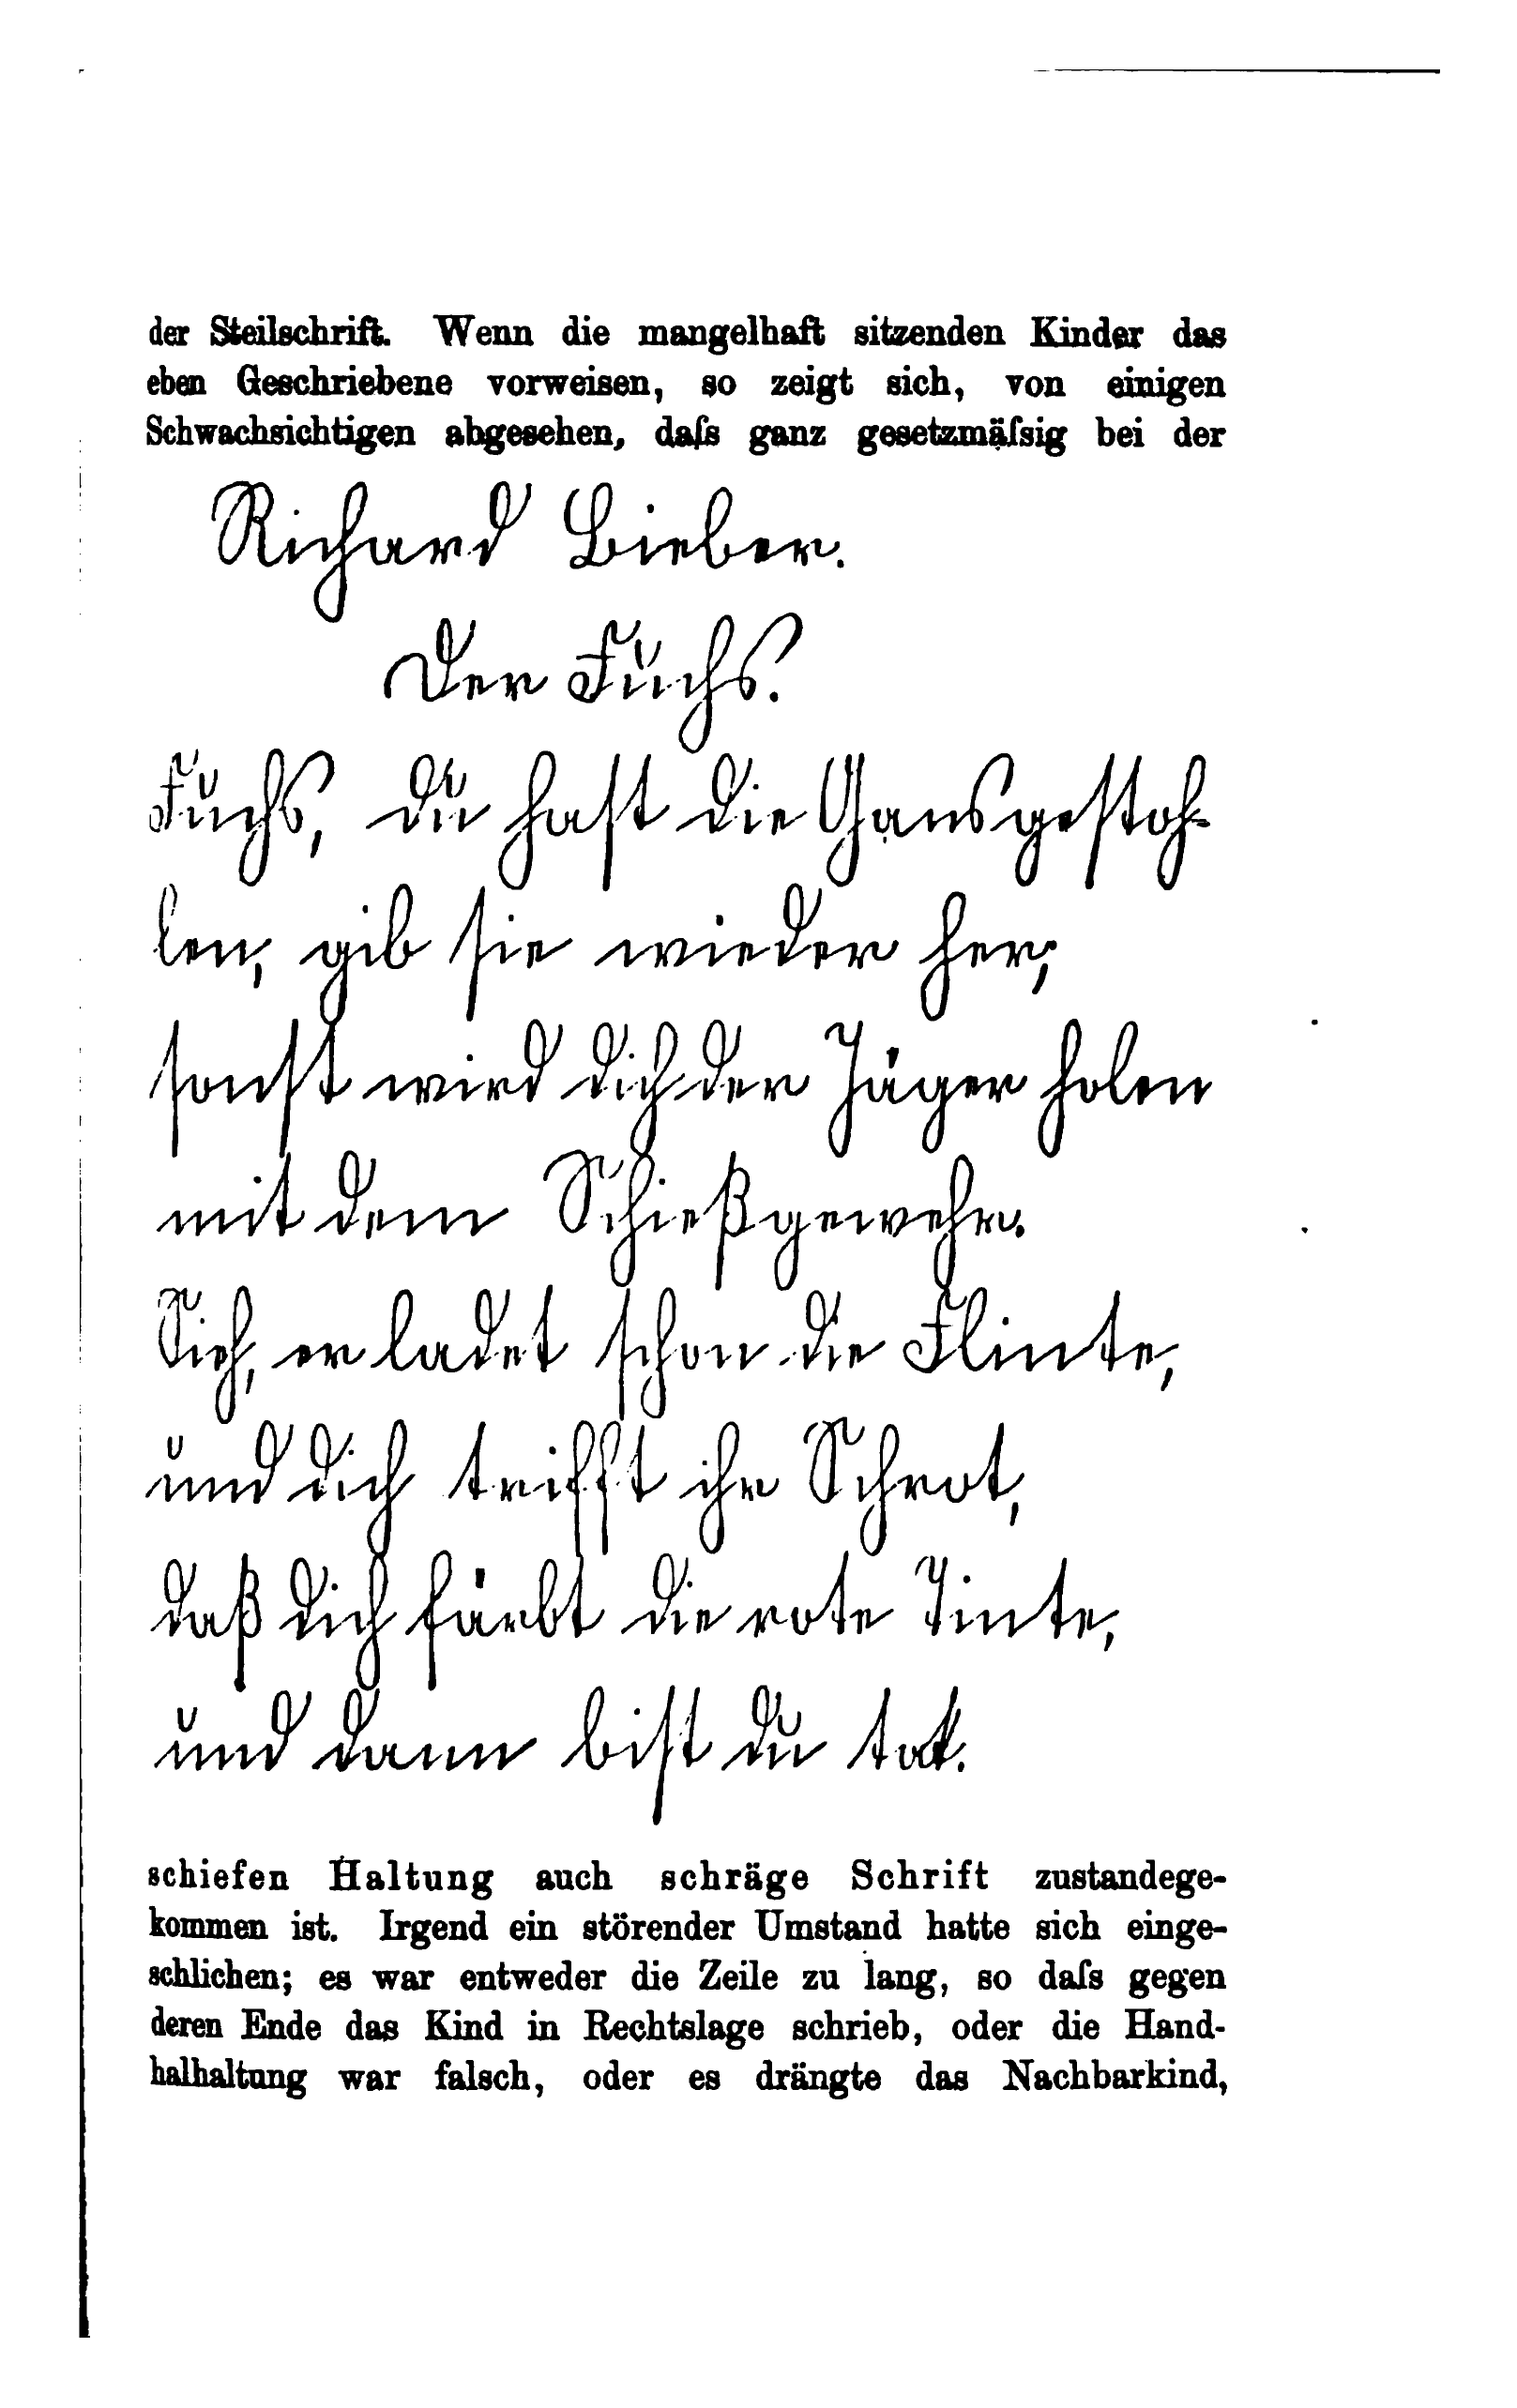 der Steilschrift. Wenn die mangelhaft sitzenden Kinder das
eben Geschriebene vorweisen, so zeigt sich, von einigen
Schwachsichtigen abgesehen, daſs ganz gesetzmäſsig bei der
Richard Bieber.
Der Fuchs.
Fuchs, du hast die Gans gestoh-
len, gib sie wieder her,
sonst wird dich der Jäger holen
mit dem Schießgewehr.
Sieh, er ladet schon die Flinte,
und dich trifft ihr Schrot,
daß dich färbt die rote Tinte,
und dann bist du tot.
schiefen Haltung auch schräge Schrift zustandege-
kommen ist. Irgend ein störender Umstand hatte sich einge-
schlichen; es war entweder die Zeile zu lang, so daſs gegen
deren Ende das Kind in Rechtslage schrieb, oder die Hand-
halhaltung war falsch, oder es drängte das Nachbarkind,